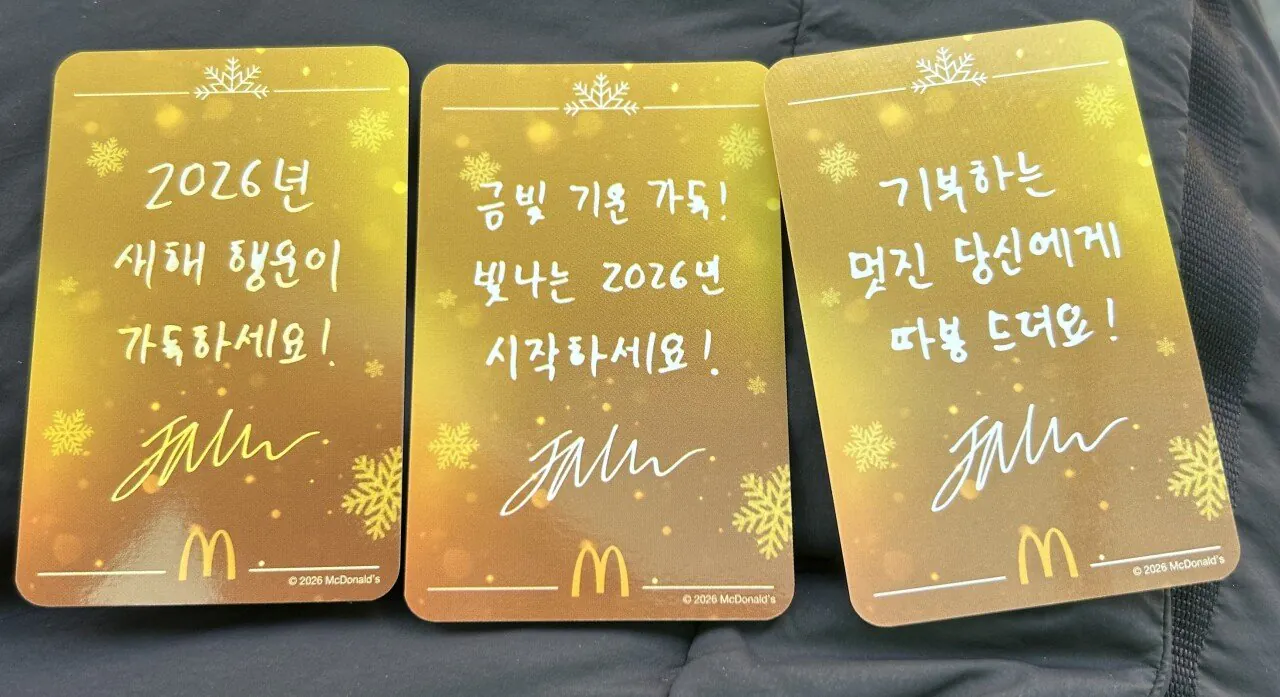 2026년
새해 행운이
가득하세요!
© 2026 McDonald's
금빛 기운 가득!
빛나는 2026년
시작하세요!
© 2026 McDonald's
기부하는
멋진 당신에게
따봉 드려요!
© 2026 McDonald's